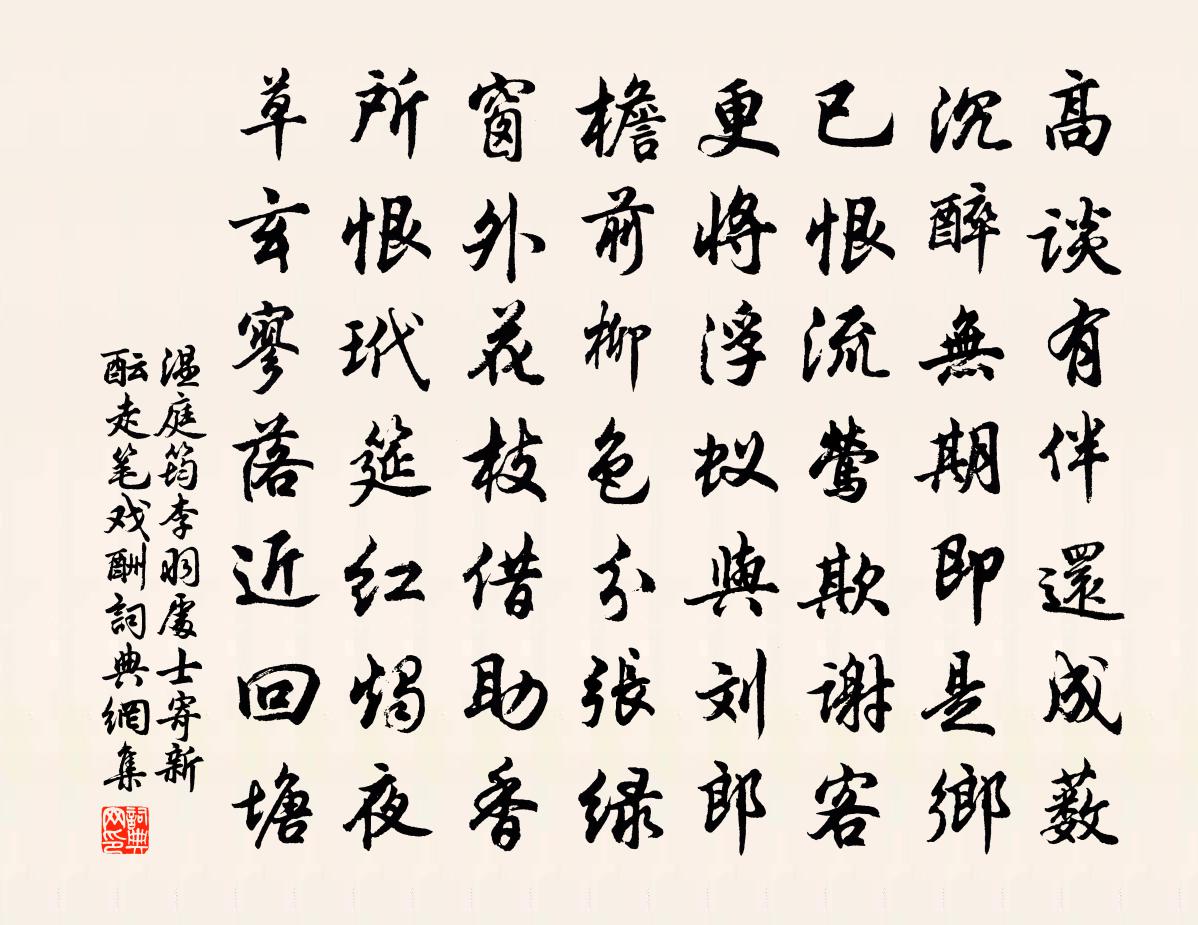 高談有伴還成薮
沉醉無期即是鄉
已恨流鶯欺謝客
更將浮蚁與刘郎
檐前柳色分張綠
窗外花枝借助香
所恨玳筵紅燭夜
草玄寥落近回塘
温庭筠李羽處士寄新
酝走笔戏酬詞典網集
詞典
网印